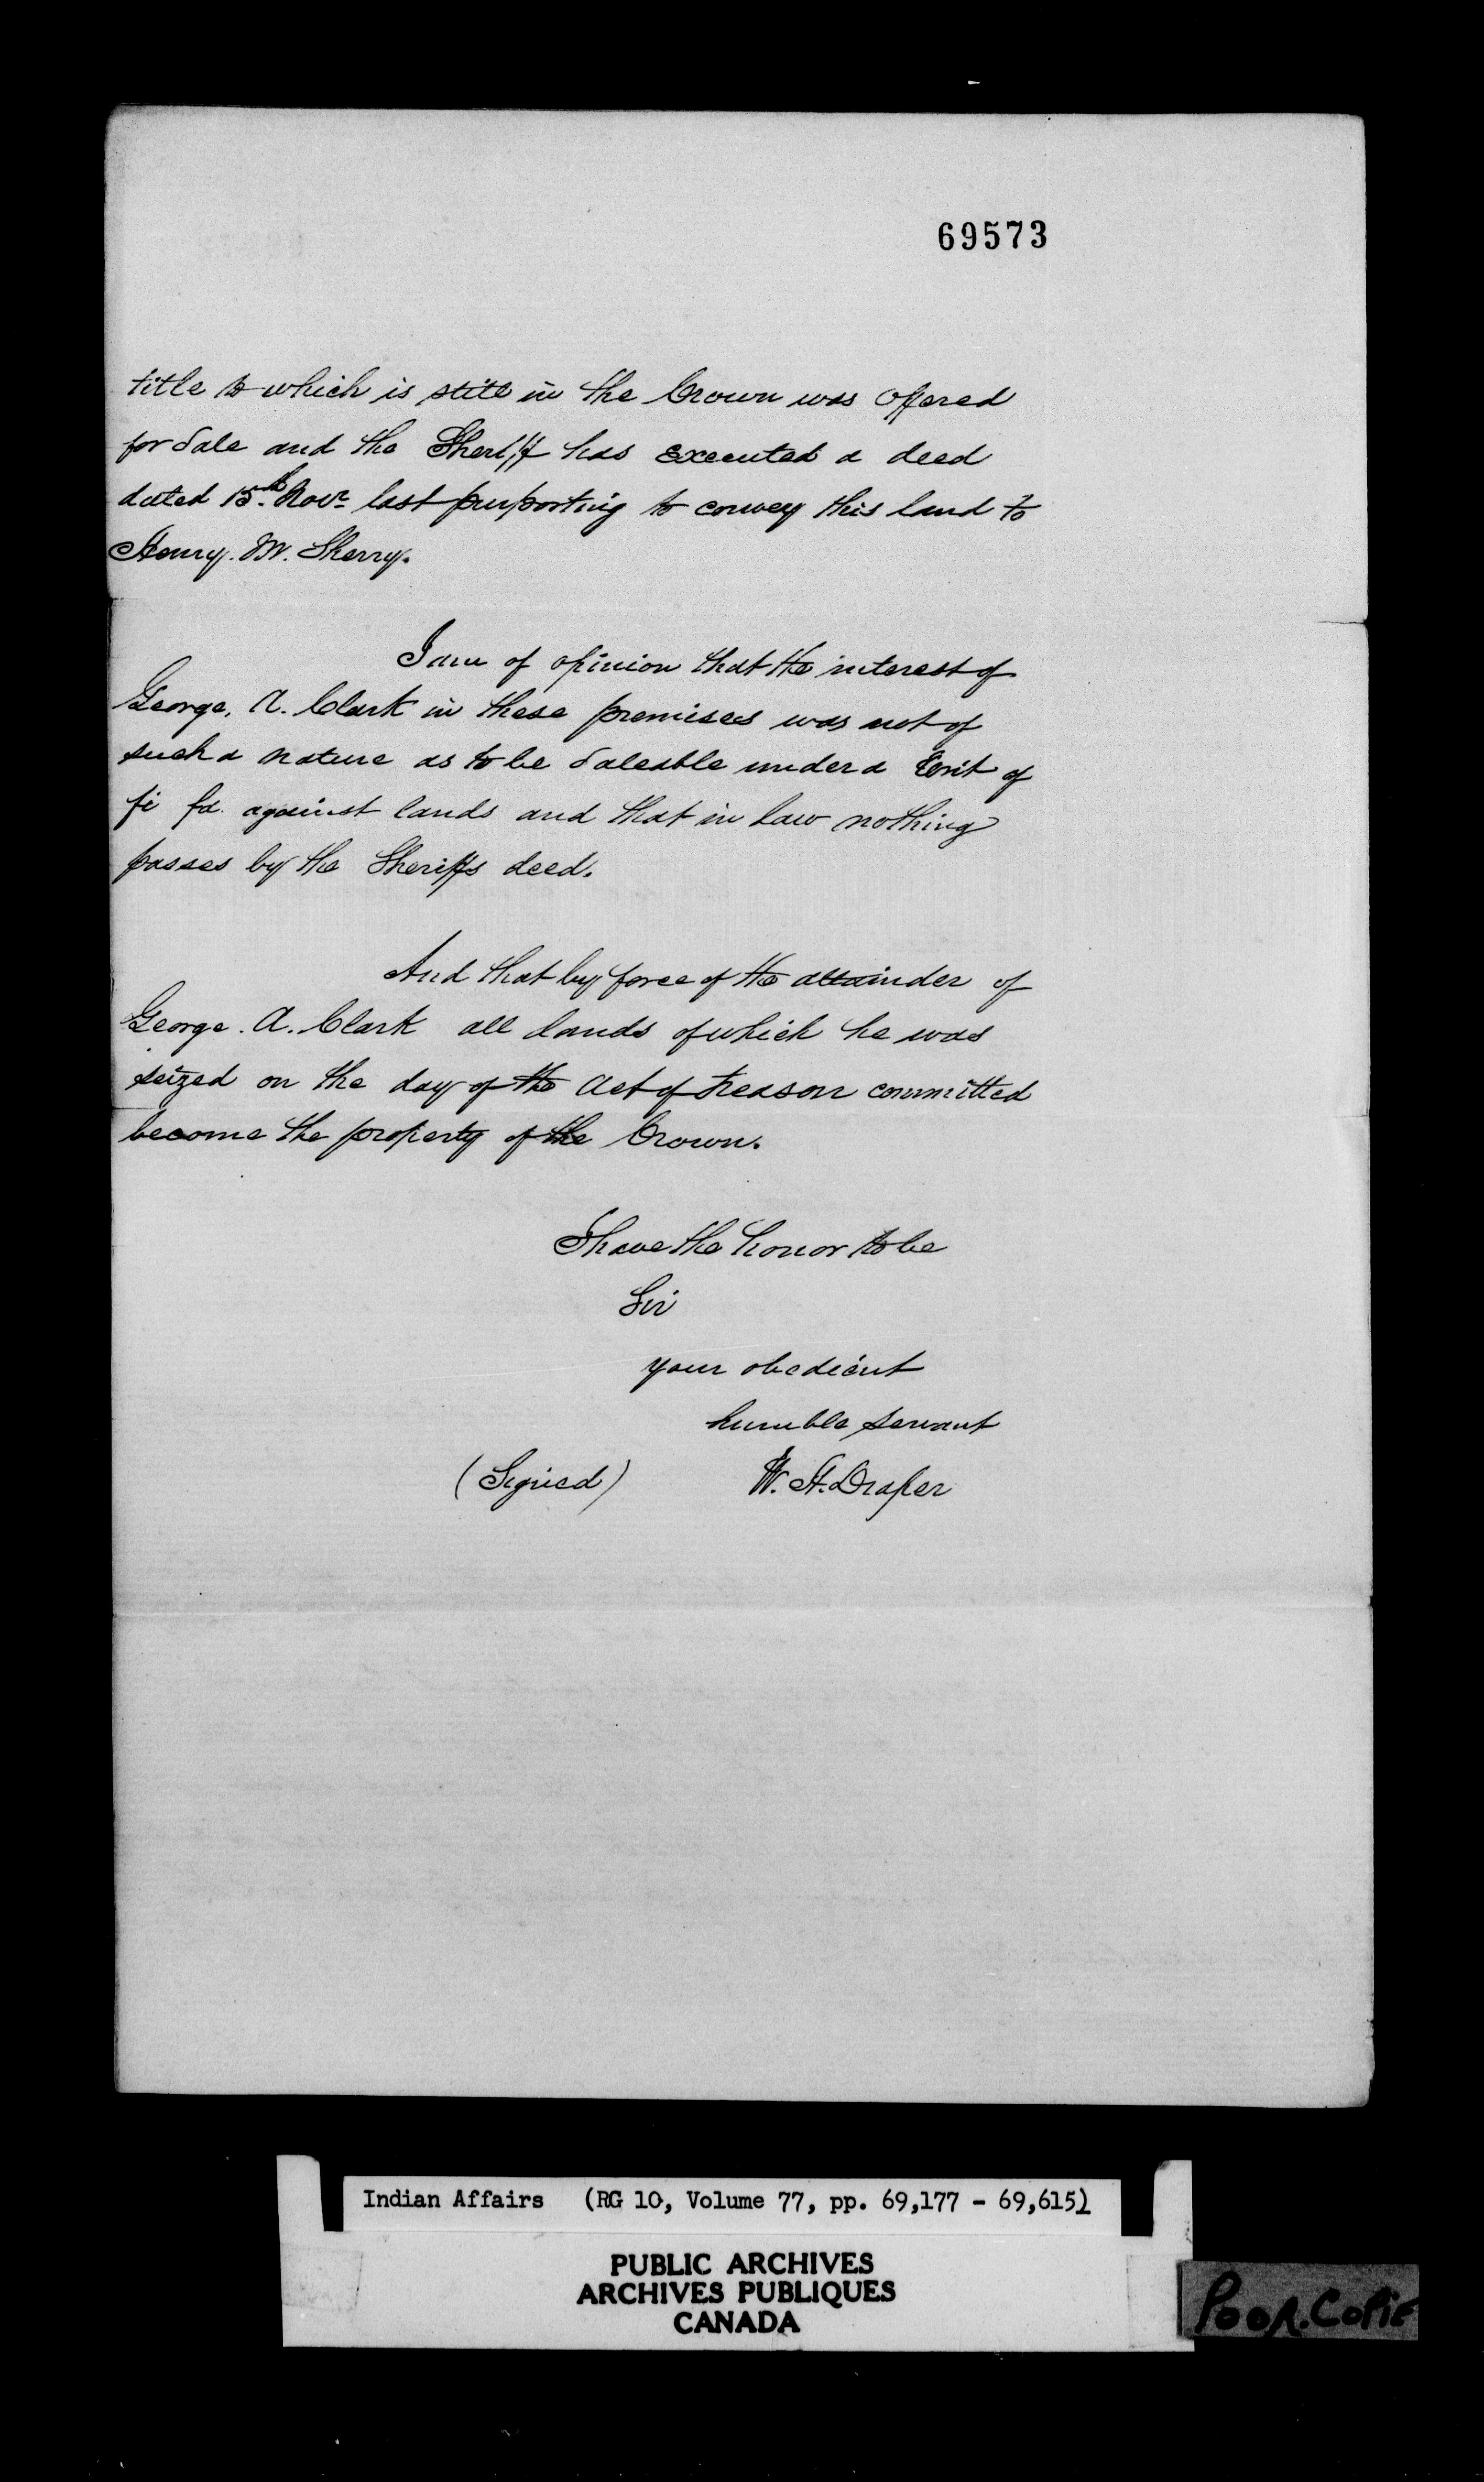 69573
title to which is still in the Crown was offered
for Sale and the Sheriff has executed a deed
dated 15th Novr last purporting to convey this land to
Henry. W. Sherry.
I am of opinion that the interest of
George. A. Clark in these premises was not of
such a nature as to be Saleable under a Writ of
fi fa. against lands and that in Law nothing
passes by the Sheriffs deed.
And that by force of the attainder of
George. A. Clark all lands of which he was
seized on the day of the Act of treason committed
become the property of the Crown.
I have the honor to be
Sir
your obedient
humble servant
(Signed) W. H. Draper
Indian Affairs (RG 10, Volume 77, pp. 69,177 - 69,615)
PUBLIC ARCHIVES
ARCHIVES PUBLIQUES
CANADA
POOR.COPIE